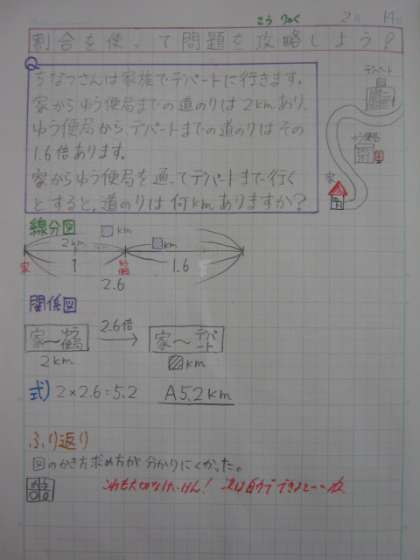 こう りゃく 2月 14日
割合を使って問題を攻略しよう?
Q
ちなつさんは家族でデパートに行きます。
家からゆう便局までの道のりは2kmあり、
ゆう便局から、デパートまでの道のりはその
1.6倍あります。
家からゆう便局を通ってデパートまで行く
とすると、道のりは何kmありますか?
デパート
ゆう便局
家
線分図
□km
2km □km
家 郵便局
1 1.6
2.6
関係図
家〜 2.6倍 家〜デパート
2km □km
式) 2×2.6=5.2 A5.2km
ふり返り
図のかき方求め方が分かりにくかった。
これも大切なけいけん! 次は自力でできると